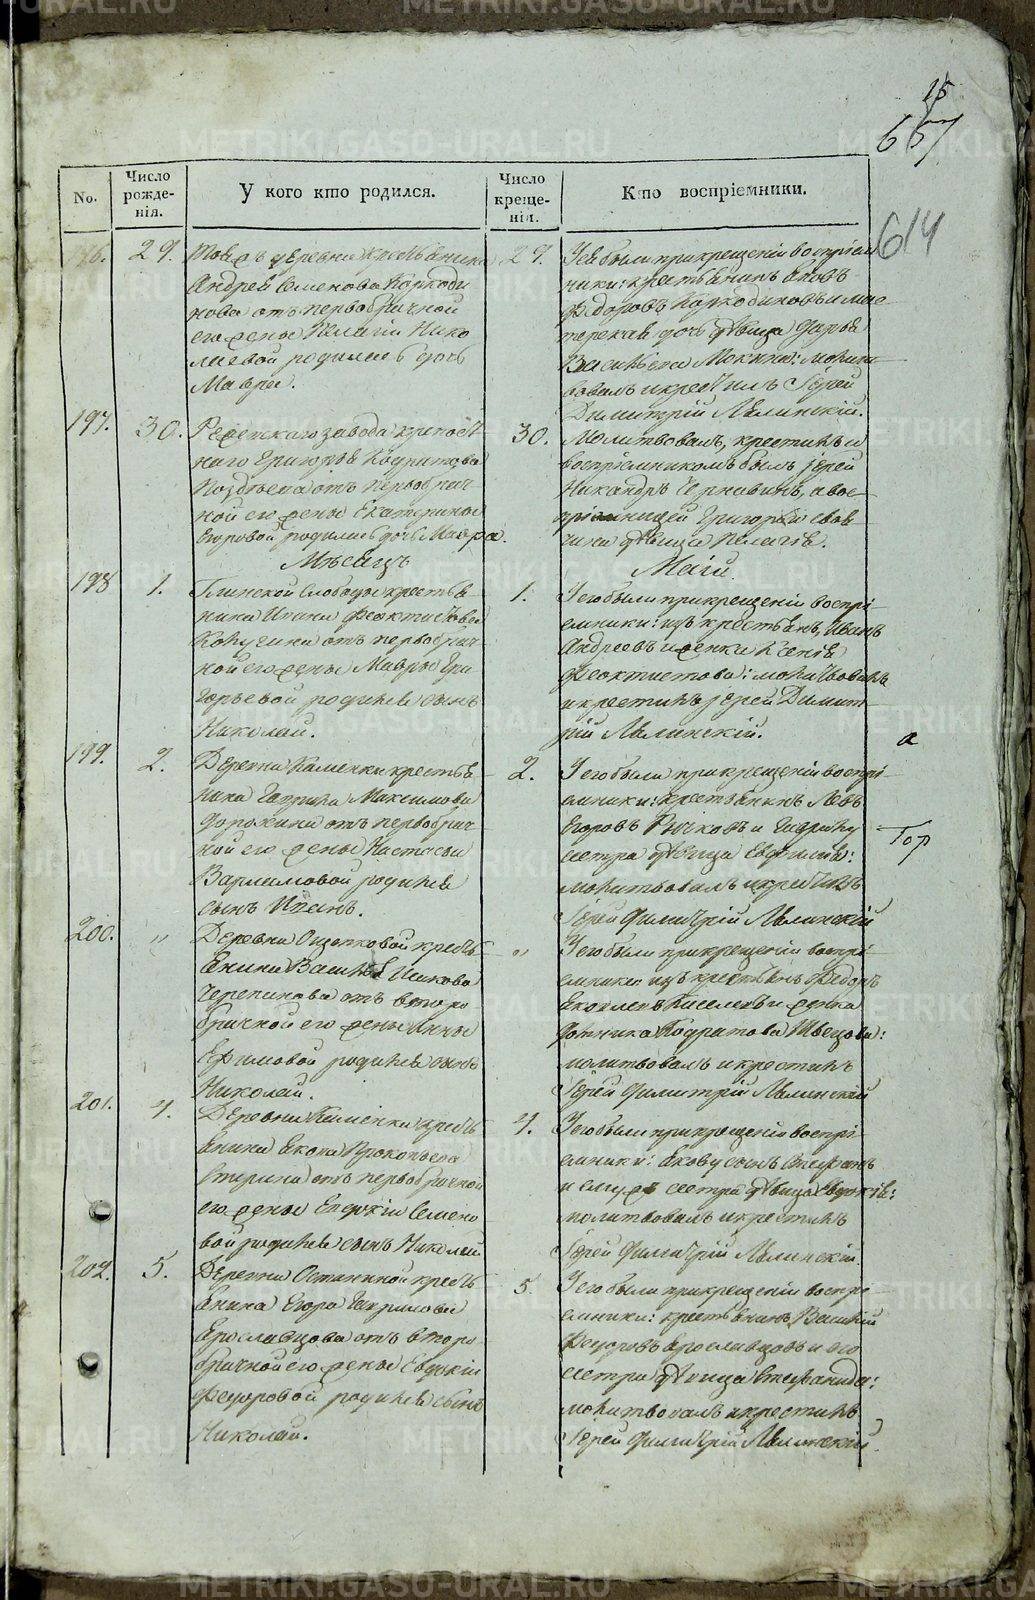 15
657
614
No.
Число рожде-нія.
У кого кто родился.
Число креще-нія.
Кто воспріемники.
29.
Андрея Семенова Коркоди
нова отъ первобрачной
его жены Пелагіи Нико
лаевой родилась дочь
Мавра.
29.
У ея были при крещеніи воспріем
ники: крестьянинъ
Ѳедоровъ Коркодиновъ и
дочь дѣвица Дарья
Васильева Мокина: молитв
вовалъ и крестилъ Іерей
Димитрій Лялинскій.
197.
30.
Режевскаго завода крепост
наго Григорья Кодратова
отъ первобрач-
ной его жены Екатерины
Егоровой родилась дочь Мавра.
30.
Молитвовалъ, крестилъ и
воспріемникомъ былъ іерей
Никандръ Чернавинъ, а вос-
пріемницей Григорья
дѣвица Пелагія.
Мѣсяцъ
Маій.
198
1.
Глинской слободы крестья
нина Ивана Феоктистова
отъ первобрач-
ной его жены Мавры Гри
горьевой родился сынъ
Николай.
1.
У его были при крещеніи воспрі-
емники: изъ крестьянъ, Иванъ
Андреевъ и женка Ксенія
Феоктистова: молитвовалъ
и крестилъ іерей Димит-
рій Лялинскій.
199.
2.
Деревни Каменки крестья
нина Гаврила Максимова
Дорохина отъ первобрач-
ной его жены Настасьи
Варламовой родился
сынъ Иванъ.
2.
У его были при крещеніи воспрі-
емники: крестьянинъ Левъ
Егоровъ Рычковъ и Гаврилу
сестра дѣвица Евфимія:
молитвовалъ и крестилъ
Іерей Димитрій Лялинскій
а
Гор
200.
"
Деревни Ощепковой кресть
янина Василья Исакова
Черепанова отъ второ
брачной его жены Анны
Ефимовой родился сынъ
Николай.
"
У его были при крещеніи воспрі-
емники изъ крестьянъ Федоръ
Яковлевъ Киселевъ и женка
Кодратова Швецова:
молитвовалъ и крестилъ
Іерей Димитрій Лялинскій
201.
4.
Деревни Каменки кресть
янина Якова Прокопьева
отъ первобрачной
его жены Евдокіи Семено
вой родился сынъ Николай
4.
У его были при крещеніи воспрі-
емники: Якову сынъ Стефанъ
и ему же сестра дѣвица Евдокія:
молитвовалъ и крестилъ
Іерей Димитрій Лялинскій
202.
5.
Деревни Останиной кресть
янина Егора Гаврилова
Ярославцова отъ второ
брачной его жены Евдокіи
Федоровой родился сынъ
Николай.
5.
У его были при крещеніи воспрі-
емники: крестьянинъ Василій
Федоровъ Ярославцовъ и его
сестра дѣвица Стефанида:
молитвовалъ и крестилъ
Іерей Димитрій Лялинскій.
METRIKI.GASO-URAL.RU